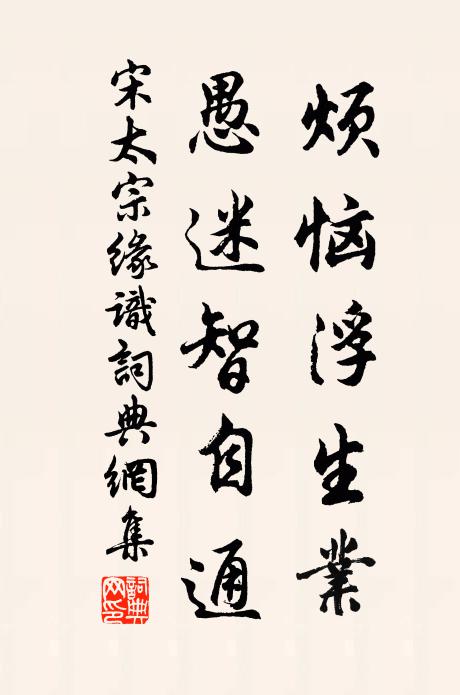 烦恼浮生業
愚迷智自通
宋太宗缘識詞典網集
詞典網印